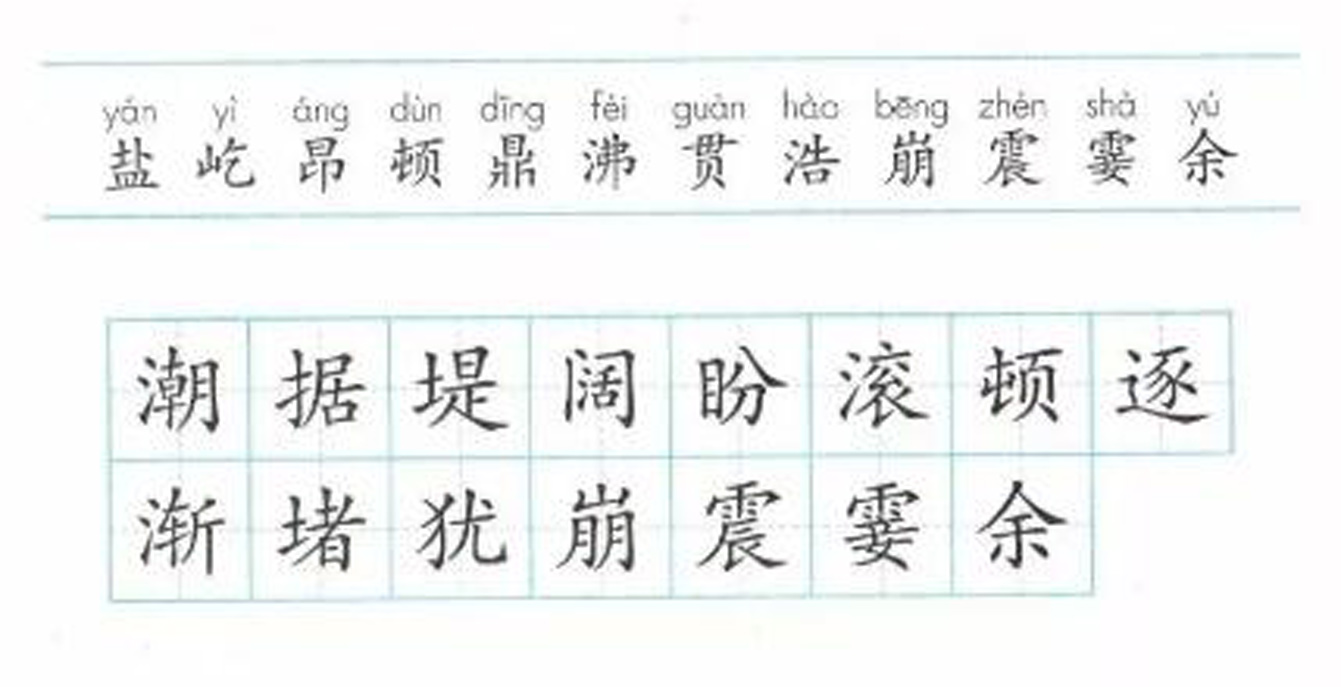 yán yì áng dùn dǐng fèi guàn hào bēng zhèn shà yú
盐 屹 昂 顿 鼎 沸 贯 浩 崩 震 霎 余
潮 据 堤 阔 盼 滚 顿 逐
渐 堵 犹 崩 震 霎 余